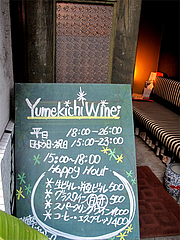 Yumekichi Wine
平日 18:00~26:00
15:00~23:00
15:00~18:00
Happy Hour
・生ビール 500
・グラスワイン 500
・スパークリングワイン
・コーヒー・エスプレッソ 400